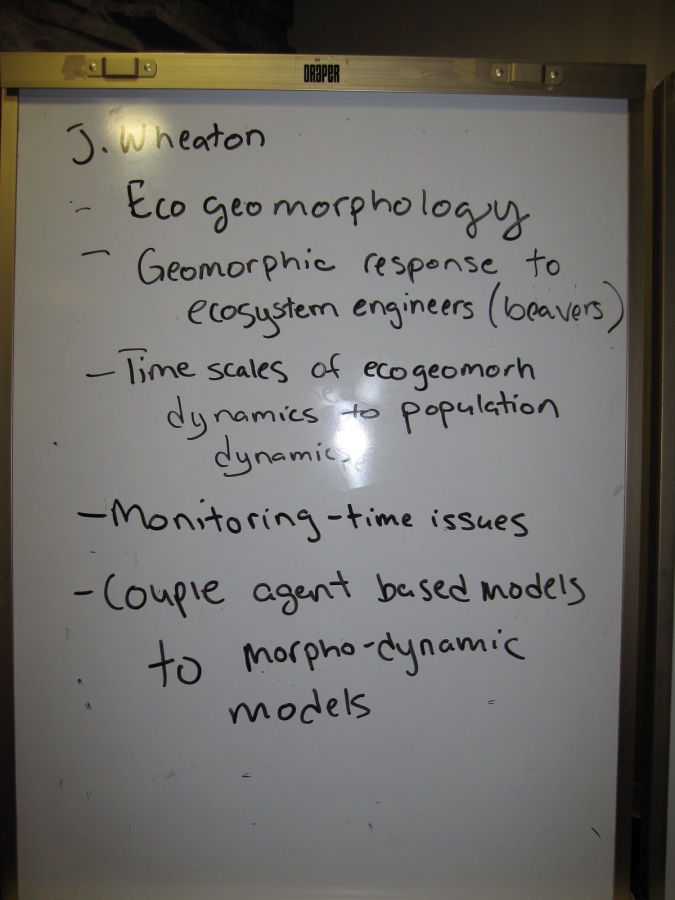 DRAPER
J. Wheaton
- Eco geomorphology
- Geomorphic response to
ecosystem engineers (beavers)
- Time scales of ecogeomorh
dynamics to population
dynamics
- Monitoring-time issues
- Couple agent based models
to morpho-dynamic
models